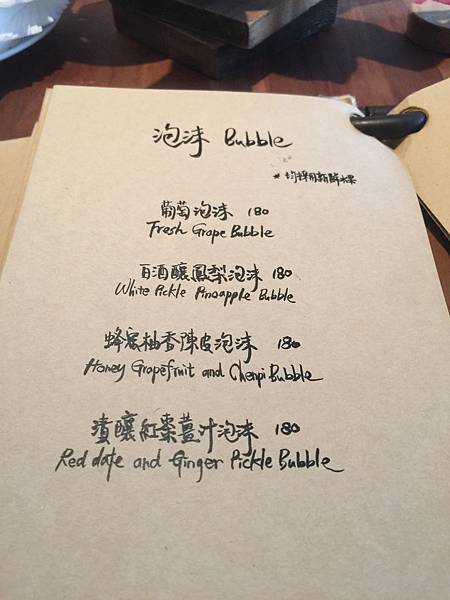 泡沫 Bubble
* 均採用新鮮水果
葡萄泡沫 180
Fresh Grape Bubble
白酒釀鳳梨泡沫 180
White Pickle Pineapple Bubble
蜂蜜柚香陳皮泡沫 180
Honey Grapefruit and Chenpi Bubble
漬釀紅棗薑汁泡沫 180
Red date and Ginger Pickle Bubble